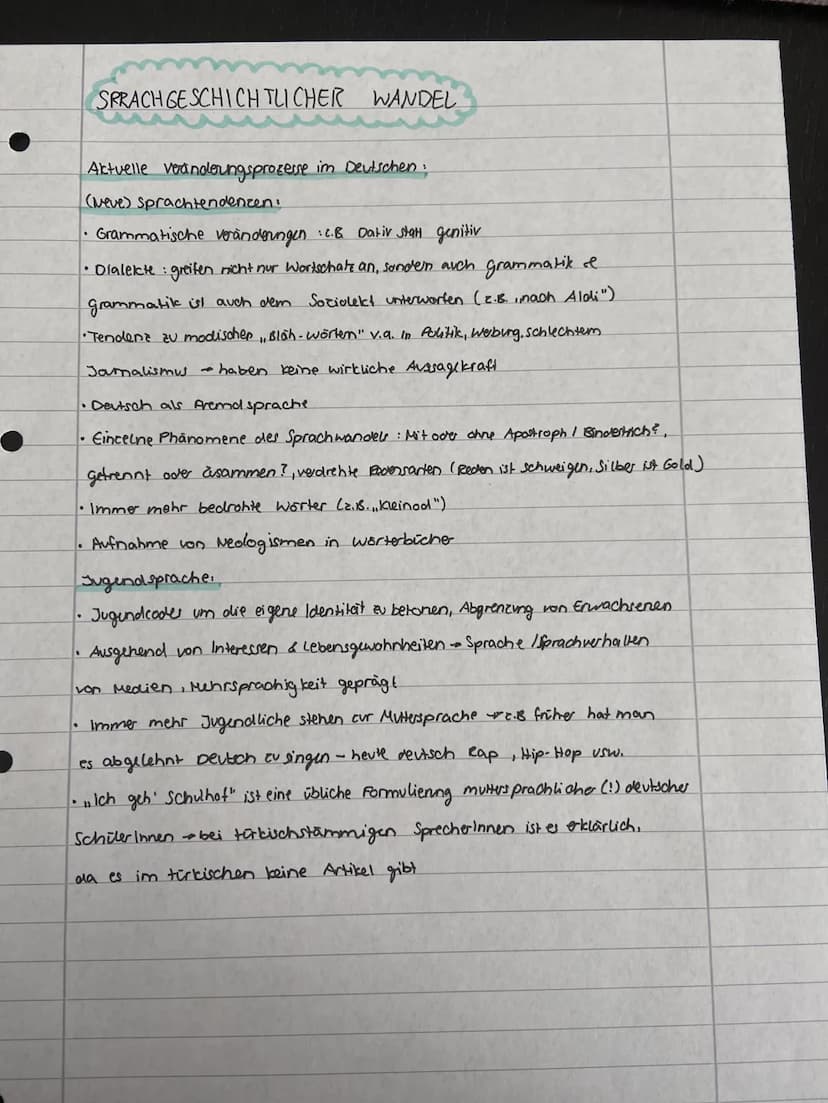 SPRACHGESCHICHTLICHER WANDEL
Aktuelle Veränderungsprozesse im Deutschen:
(Neue) Sprachtendenzen:
· Grammatische Veränderungen : z.B Dativ statt genitiv
· Dialekte : greifen nicht nur Wortschatz an, sondern auch grammatik &
grammatik ist auch dem Soziolekt unterworfen (z.B. „nach Aldi")
· Tendenz zu modischen „Bläh-Wörtern" v.a. in Politik, Werbung, schlechtem
Journalismus → haben keine wirkliche Aussagekraft
· Deutsch als Fremdsprache
· Einzelne Phänomene des Sprachwandels : Mit oder ohne Apostroph / Bindestrich?,
getrennt oder zusammen?, verdrehte Redensarten (Reden ist schweigen, Silber ist Gold)
· Immer mehr bedrohte Wörter (z.B. „Kleinod")
· Aufnahme von Neologismen in Wörterbücher
Jugendsprache:
· Jugendcodes um die eigene Identität zu betonen, Abgrenzung von Erwachsenen
· Ausgehend von Interessen & Lebensgewohnheiten → Sprache / Sprachverhalten
von Medien, Mehrsprachigkeit geprägt
· Immer mehr Jugendliche stehen zur Muttersprache → z.B früher hat man
es abgelehnt Deutsch zu singen – heute deutsch Rap, Hip-Hop usw.
· „Ich geh' Schulhof" ist eine übliche Formulierung muttersprachlicher (!) deutscher
SchülerInnen → bei türkischstämmigen SprecherInnen ist es erklärlich,
da es im türkischen keine Artikel gibt